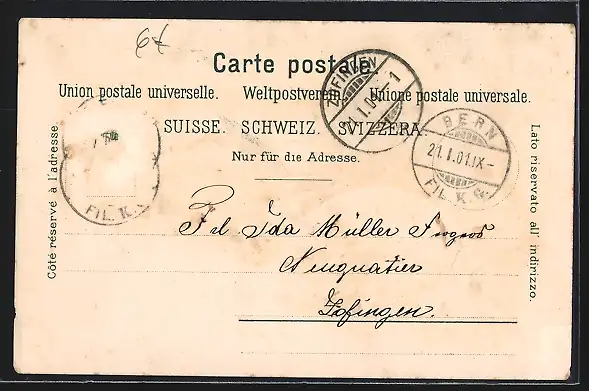 6
Carte postale.
Union postale universelle. Weltpostverein. Unione postale universale.
SUISSE. SCHWEIZ. SVIZZERA.
Nur für die Adresse.
Côté réservé à l'adresse
Lato riservato all' indirizzo.
ZOFINGEN
21.I.01
1
BERN
21.I.01.IX-
FIL. K.
FIL. K.
Frl Ida Müller
Neuquartier
Zofingen.